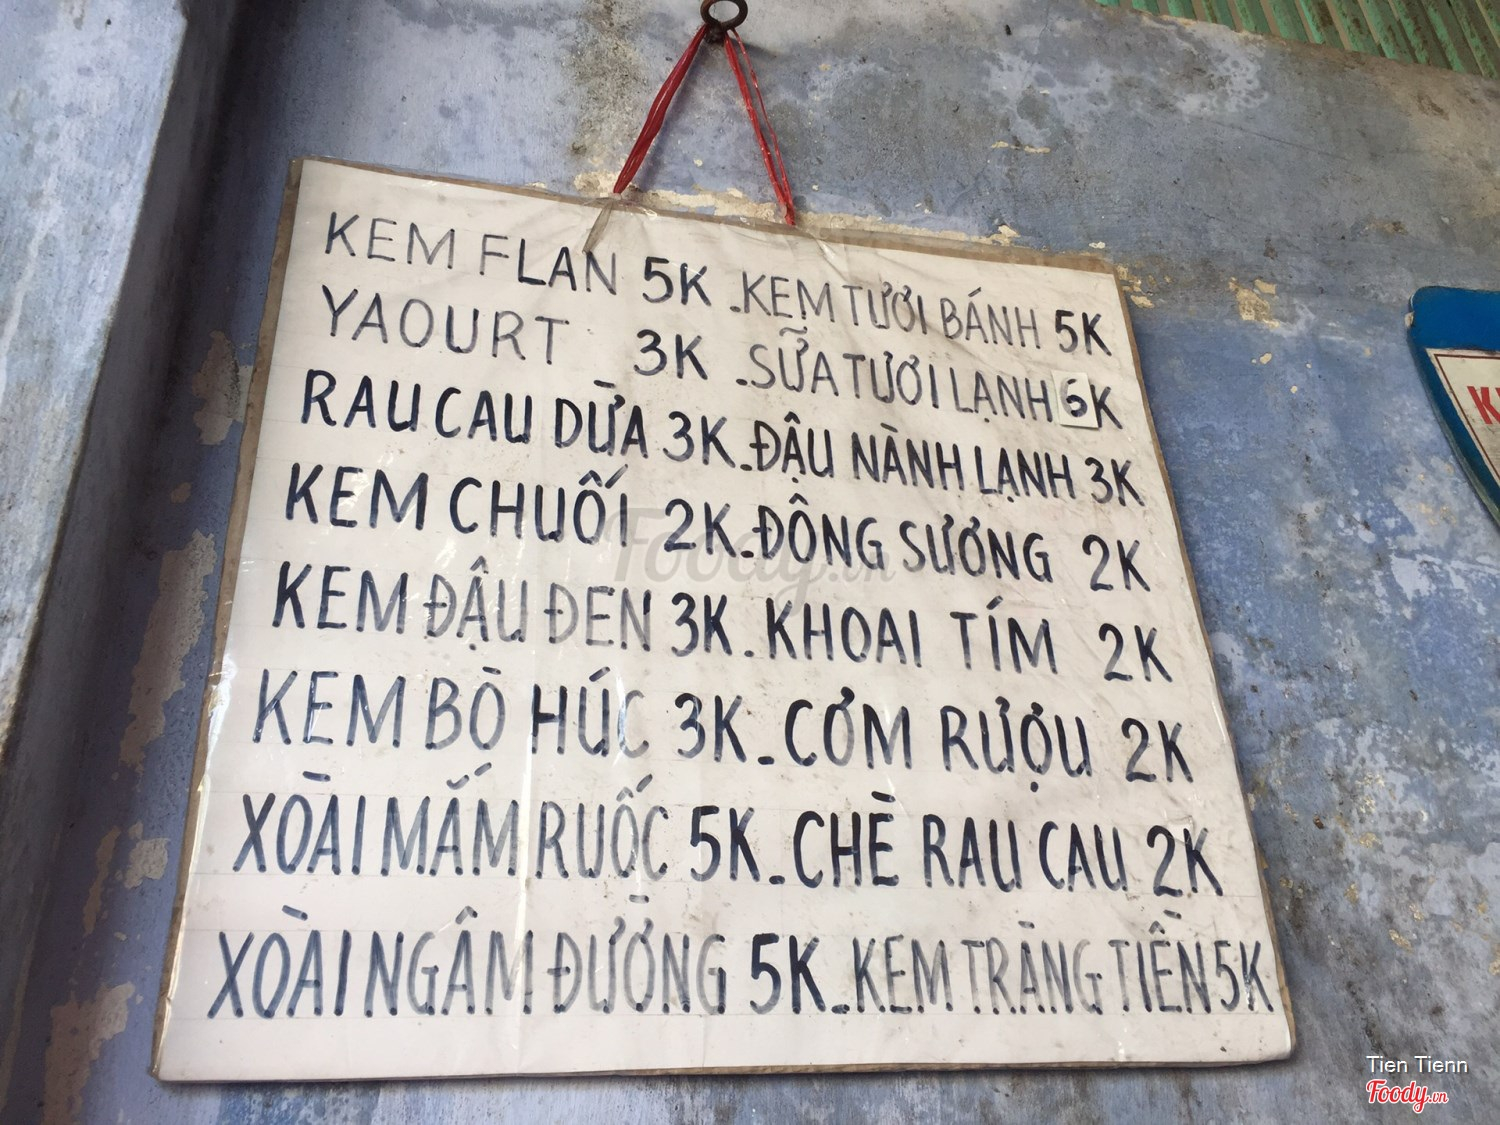 KEM FLAN 5K - KEM TƯƠI BÁNH 5K
YAOURT 3K - SỮA TƯƠI LẠNH 6K
RAU CAU DỪA 3K - ĐẬU NÀNH LẠNH 3K
KEM CHUỐI 2K - ĐÔNG SƯƠNG 2K
KEM ĐẬU ĐEN 3K - KHOAI TÍM 2K
KEM BÒ HÚC 3K - CƠM RƯỢU 2K
XOÀI MẮM RUỐC 5K - CHÈ RAU CAU 2K
XOÀI NGÂM ĐƯỜNG 5K - KEM TRÀNG TIỀN 5K
Foody.vn
Tien Tienn
Foody.vn